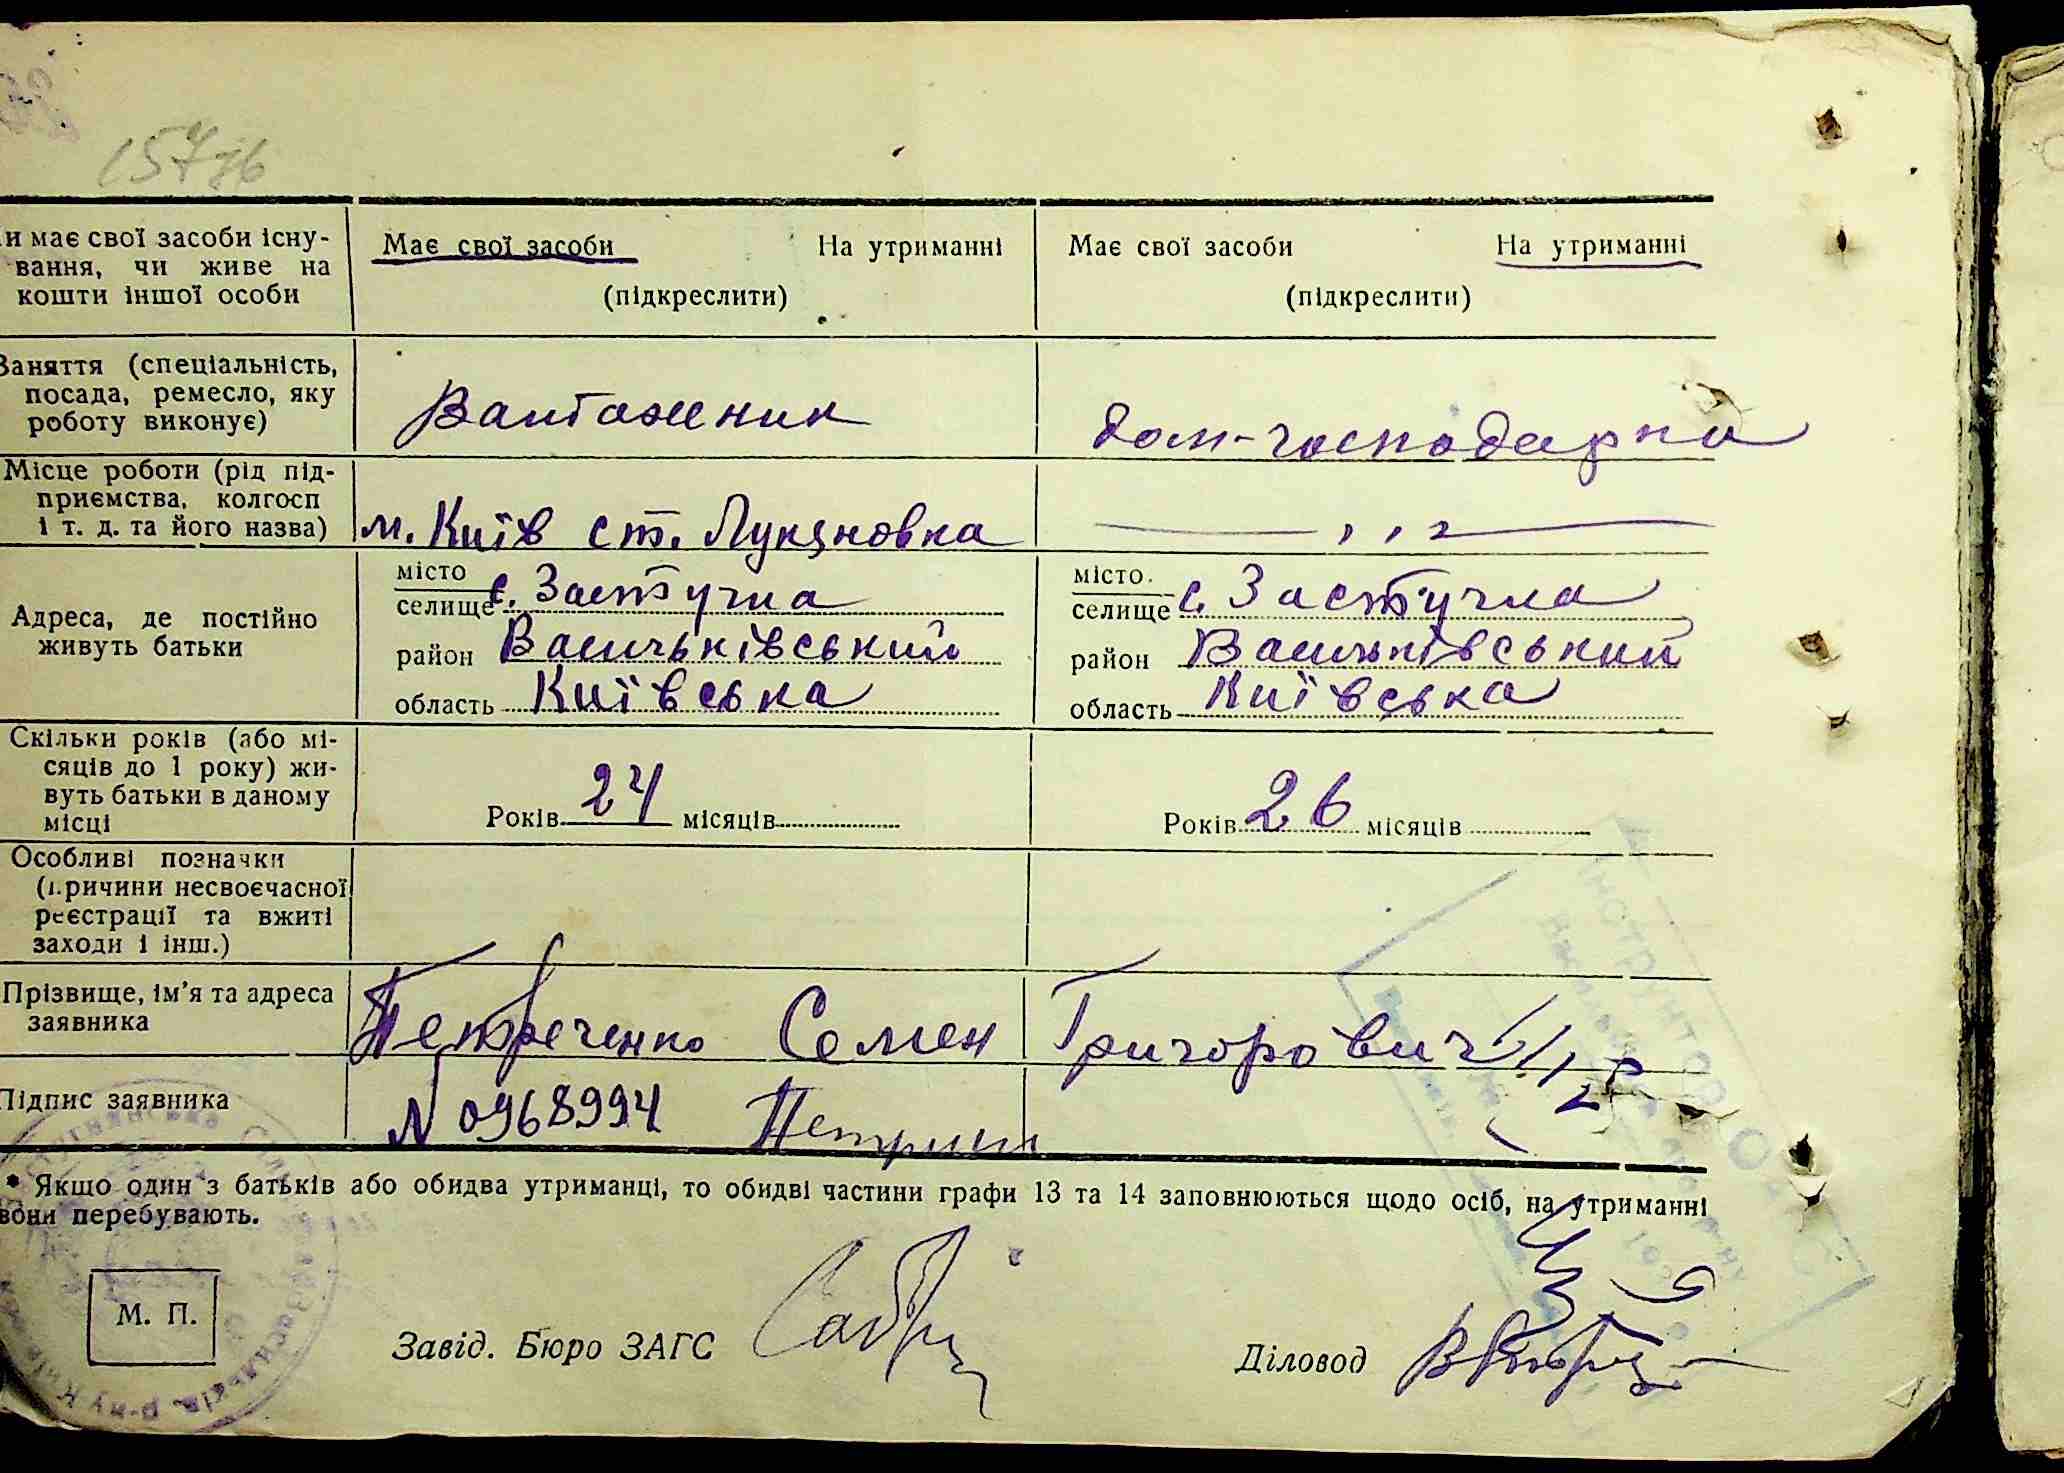 157зв
и має свої засоби існу-
вання, чи живе на
кошти іншої особи
Має свої засоби На утриманні
(підкреслити)
Має свої засоби На утриманні
(підкреслити)
Заняття (спеціальність,
посада, ремесло, яку
роботу виконує)
Вантажник
дом-господарка
Місце роботи (рід під-
приємства, колгосп
і т. д. та його назва)
м. Київ ст. Лукяновка
Адреса, де постійно
живуть батьки
місто
селище с. Застугна
район Васильківський
область Київська
місто
селище с. Застугна
район Васильківський
область Київська
Скільки років (або мі-
сяців до 1 року) жи-
вуть батьки в даному
місці
Років 24 місяців
Років 26 місяців
Особливі позначки
(причини несвоєчасної
реєстрації та вжиті
заходи і інш.)
Прізвище, ім'я та адреса
заявника
Петреченко Семен Григорович
Підпис заявника
N 0968994
* Якщо один з батьків або обидва утриманці, то обидві частини графи 13 та 14 заповнюються щодо осіб, на утриманні
вони перебувають.
М. П.
Завід. Бюро ЗАГС
Діловод